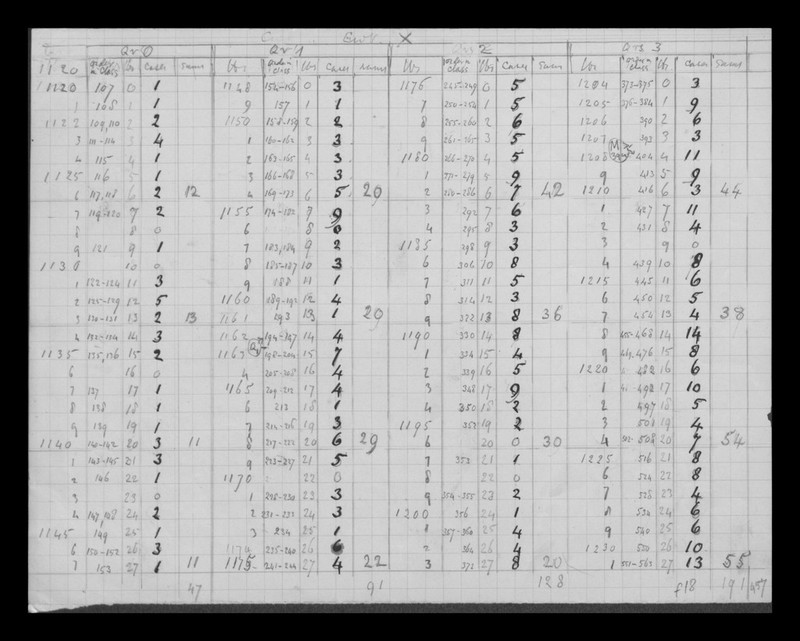 Cwt. X
Qr 0 Qr 1 Qrs 2 Qrs 3
lbs order in class lbs cases sums lbs order in class lbs cases sums lbs order in class lbs cases sums lbs order in class lbs cases sums
1120 107 0 1 1148 154-156 0 3 1176 245-249 0 5 1204 373-375 0 3
1 108 1 1 9 157 1 1 7 250-254 1 5 1205 376-384 1 9
1122 109,110 2 2 1150 158-159 2 2 8 255-260 2 6 1206 390 2 6
3 111-114 3 4 1 160-162 3 3 9 261-265 3 5 1207 393 3 3
4 115 4 1 2 163-165 4 3 1180 266-270 4 5 1208 404 4 11
1125 116 5 1 3 166-168 5 3 1 271-279 5 9 9 413 5 9
6 117,118 6 2 12 4 169-173 6 5 20 2 280-286 6 7 42 1210 416 6 3 44
7 119-120 7 2 1155 174-182 7 9 3 292 7 6 1 427 7 11
8 8 0 6 8 0 4 295 8 3 2 431 8 4
9 121 9 1 7 183,184 9 2 1185 298 9 3 3 9 0
1130 10 0 8 185-187 10 3 6 306 10 8 4 439 10 8
1 122-124 11 3 9 188 11 1 7 311 11 5 1215 445 11 6
2 125-129 12 5 1160 189-192 12 4 8 314 12 3 6 450 12 5
3 130-131 13 2 13 1161 193 13 1 20 9 322 13 8 36 7 454 13 4 38
4 132-134 14 3 1162 194-197 14 4 1190 330 14 8 8 455-468 14 14
1135 135,136 15 2 1163 198-204 15 7 1 334 15 4 9 469-476 15 8
6 16 0 4 205-208 16 4 2 339 16 5 1220 482 16 6
7 137 17 1 1165 209-212 17 4 3 348 17 9 1 492 17 10
8 138 18 1 6 213 18 1 4 350 18 2 2 497 18 5
9 139 19 1 7 214-216 19 3 1195 352 19 2 3 501 19 4
1140 140-142 20 3 11 8 217-222 20 6 29 6 20 0 30 4 502-508 20 7 54
1 143-145 21 3 9 223-227 21 5 7 353 21 1 1225 516 21 8
2 146 22 1 1170 22 0 8 22 0 6 524 22 8
3 23 0 1 228-230 23 3 9 354-355 23 2 7 528 23 4
4 147,148 24 2 2 231-233 24 3 1200 356 24 1 8 534 24 6
1145 149 25 1 3 234 25 1 1 357-360 25 4 9 540 25 6
6 150-152 26 3 1174 235-240 26 6 2 364 26 4 1230 550 26 10
7 153 27 1 11 1175 241-244 27 4 22 3 372 27 8 20 1 551-563 27 13 55
47 91 128 f18 191 457